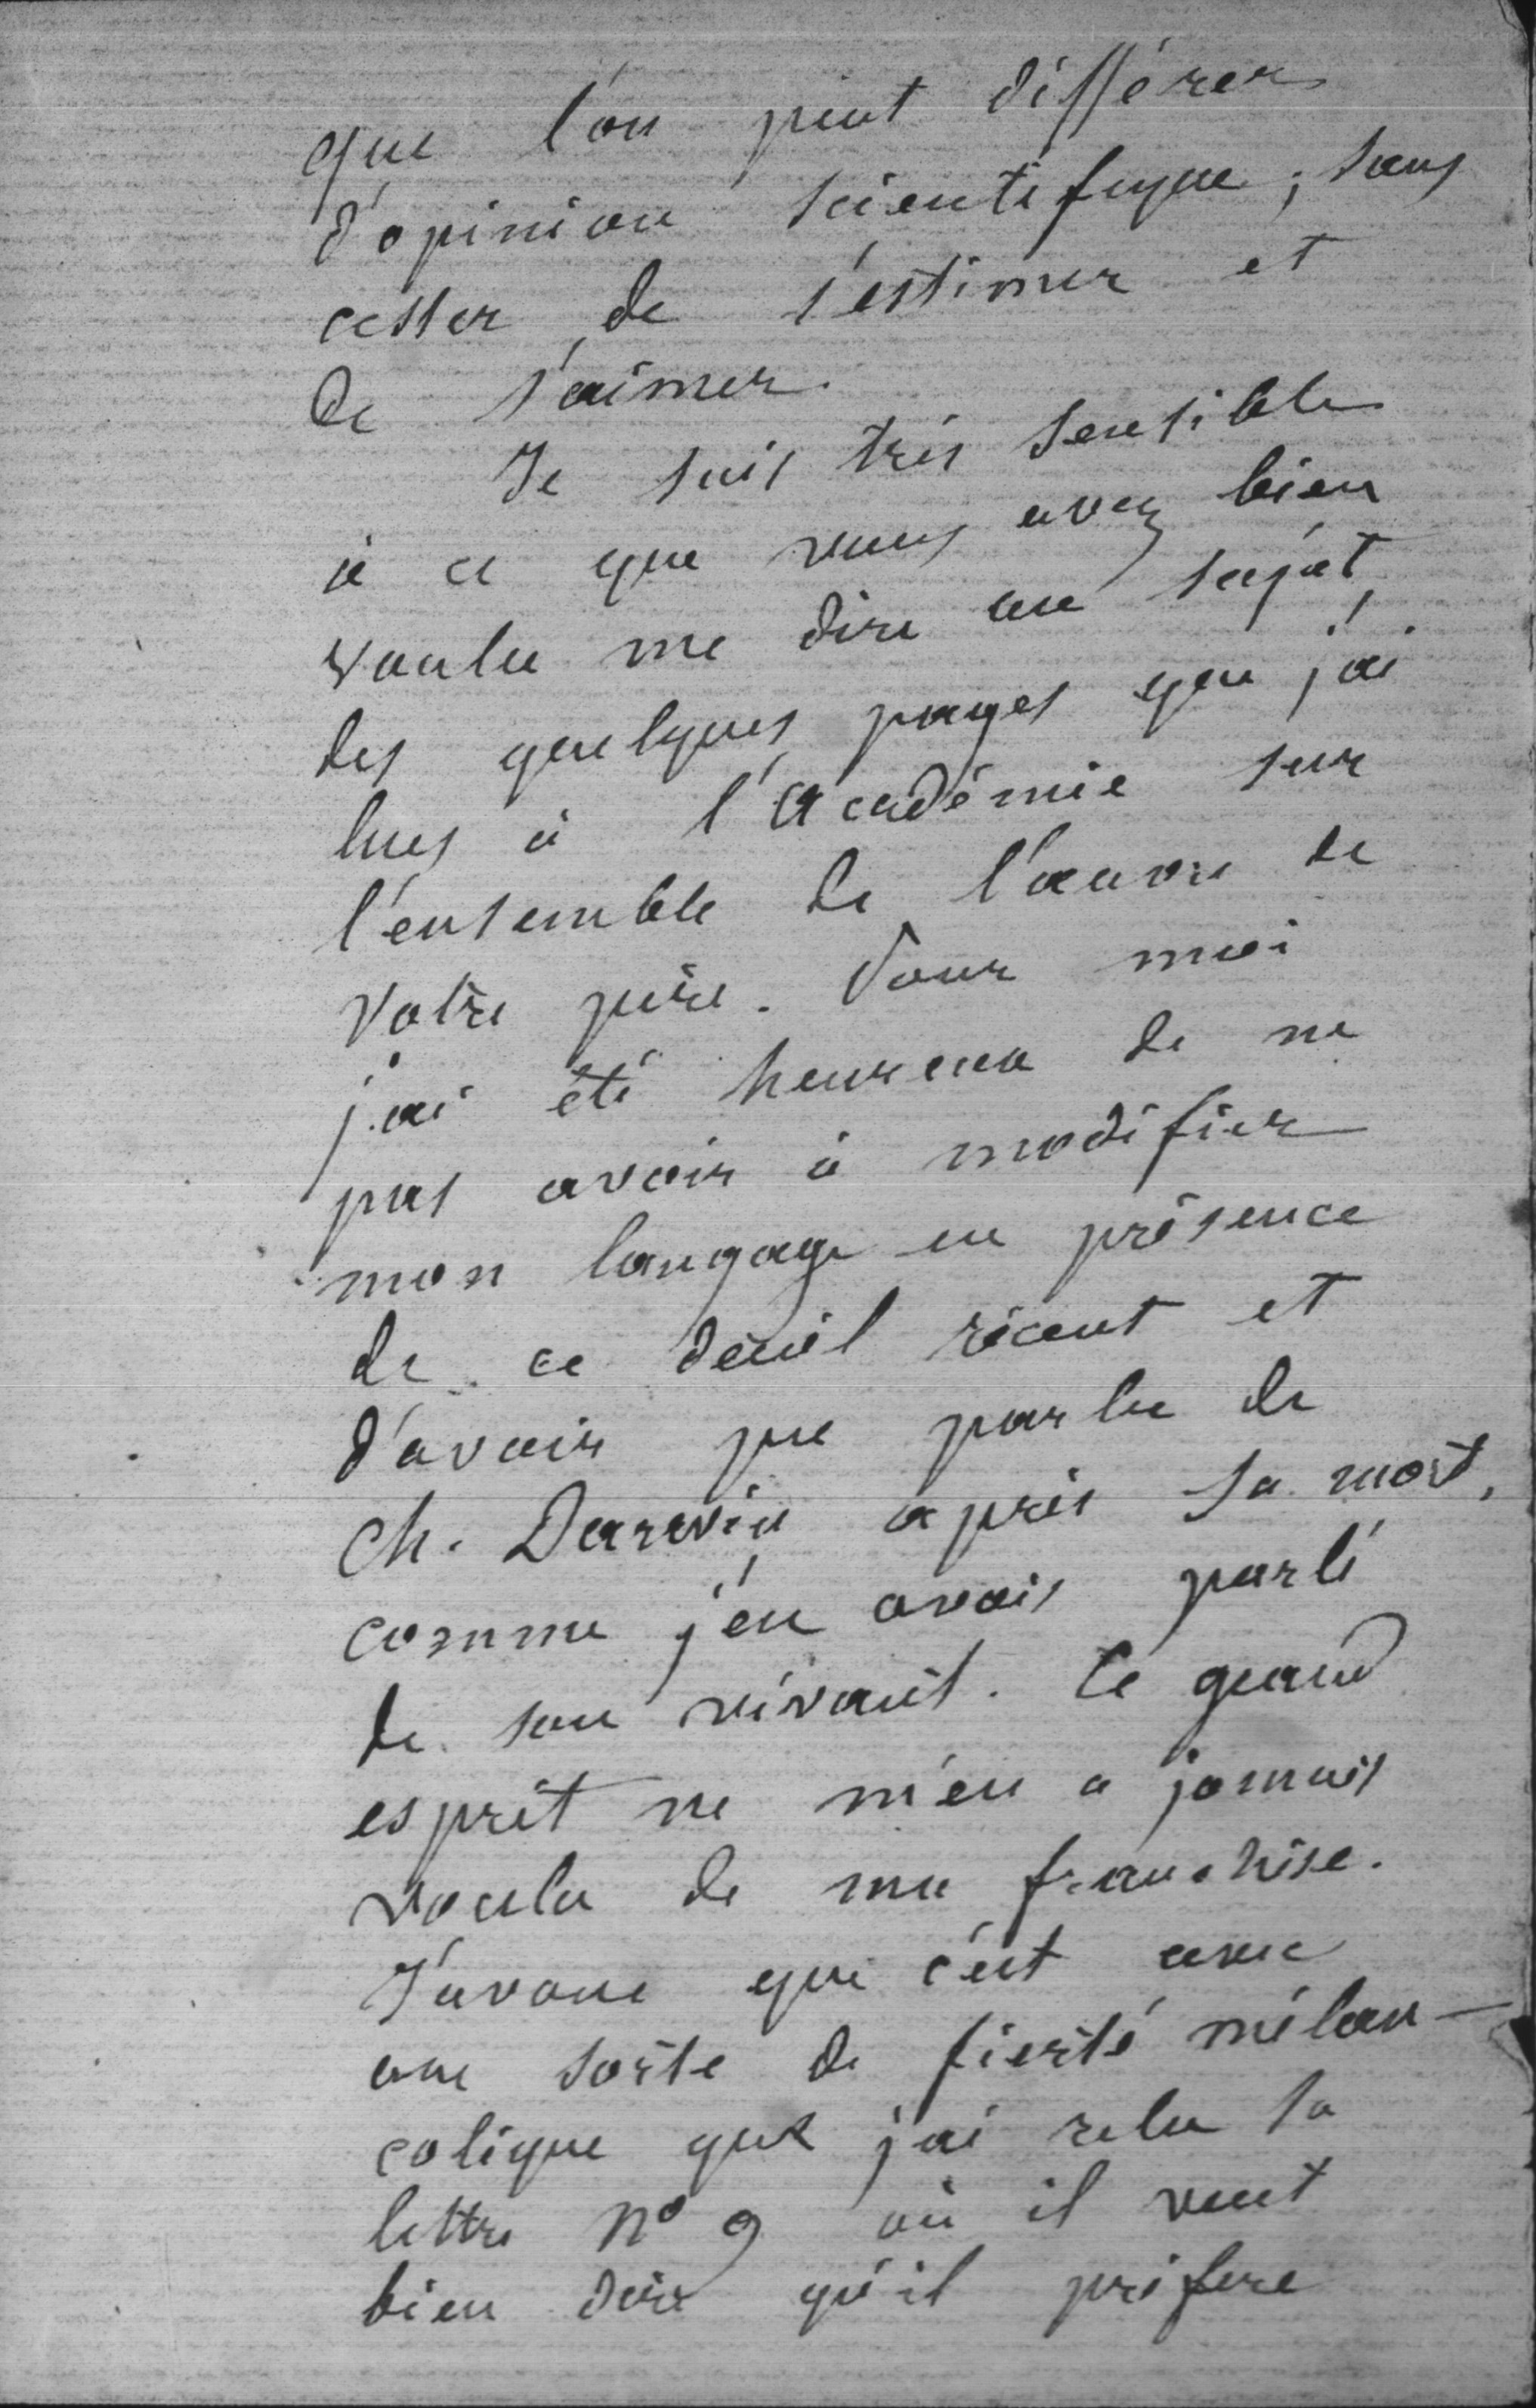 que l'on peut différer
d'opinion scientifique, sans
cesser de s'estimer et
de s'aimer.
Je suis très sensible
à ce que vous avez bien
voulu me dire au sujet
des quelques pages que j'ai
lues à l'Académie sur
l'ensemble de l'œuvre de
votre père. Pour moi
j'ai été heureux de ne
pas avoir à modifier
mon langage en présence
de ce deuil récent et
d'avoir pu parler de
Ch. Darwin après sa mort,
comme j'en avais parlé
de son vivant. Ce grand
esprit ne m'en a jamais
voulu de ma franchise.
J'avoue que c'est avec
une sorte de fierté mélan-
colique que j'ai relu sa
lettre N° 9 où il veut
bien dire qu'il préfère